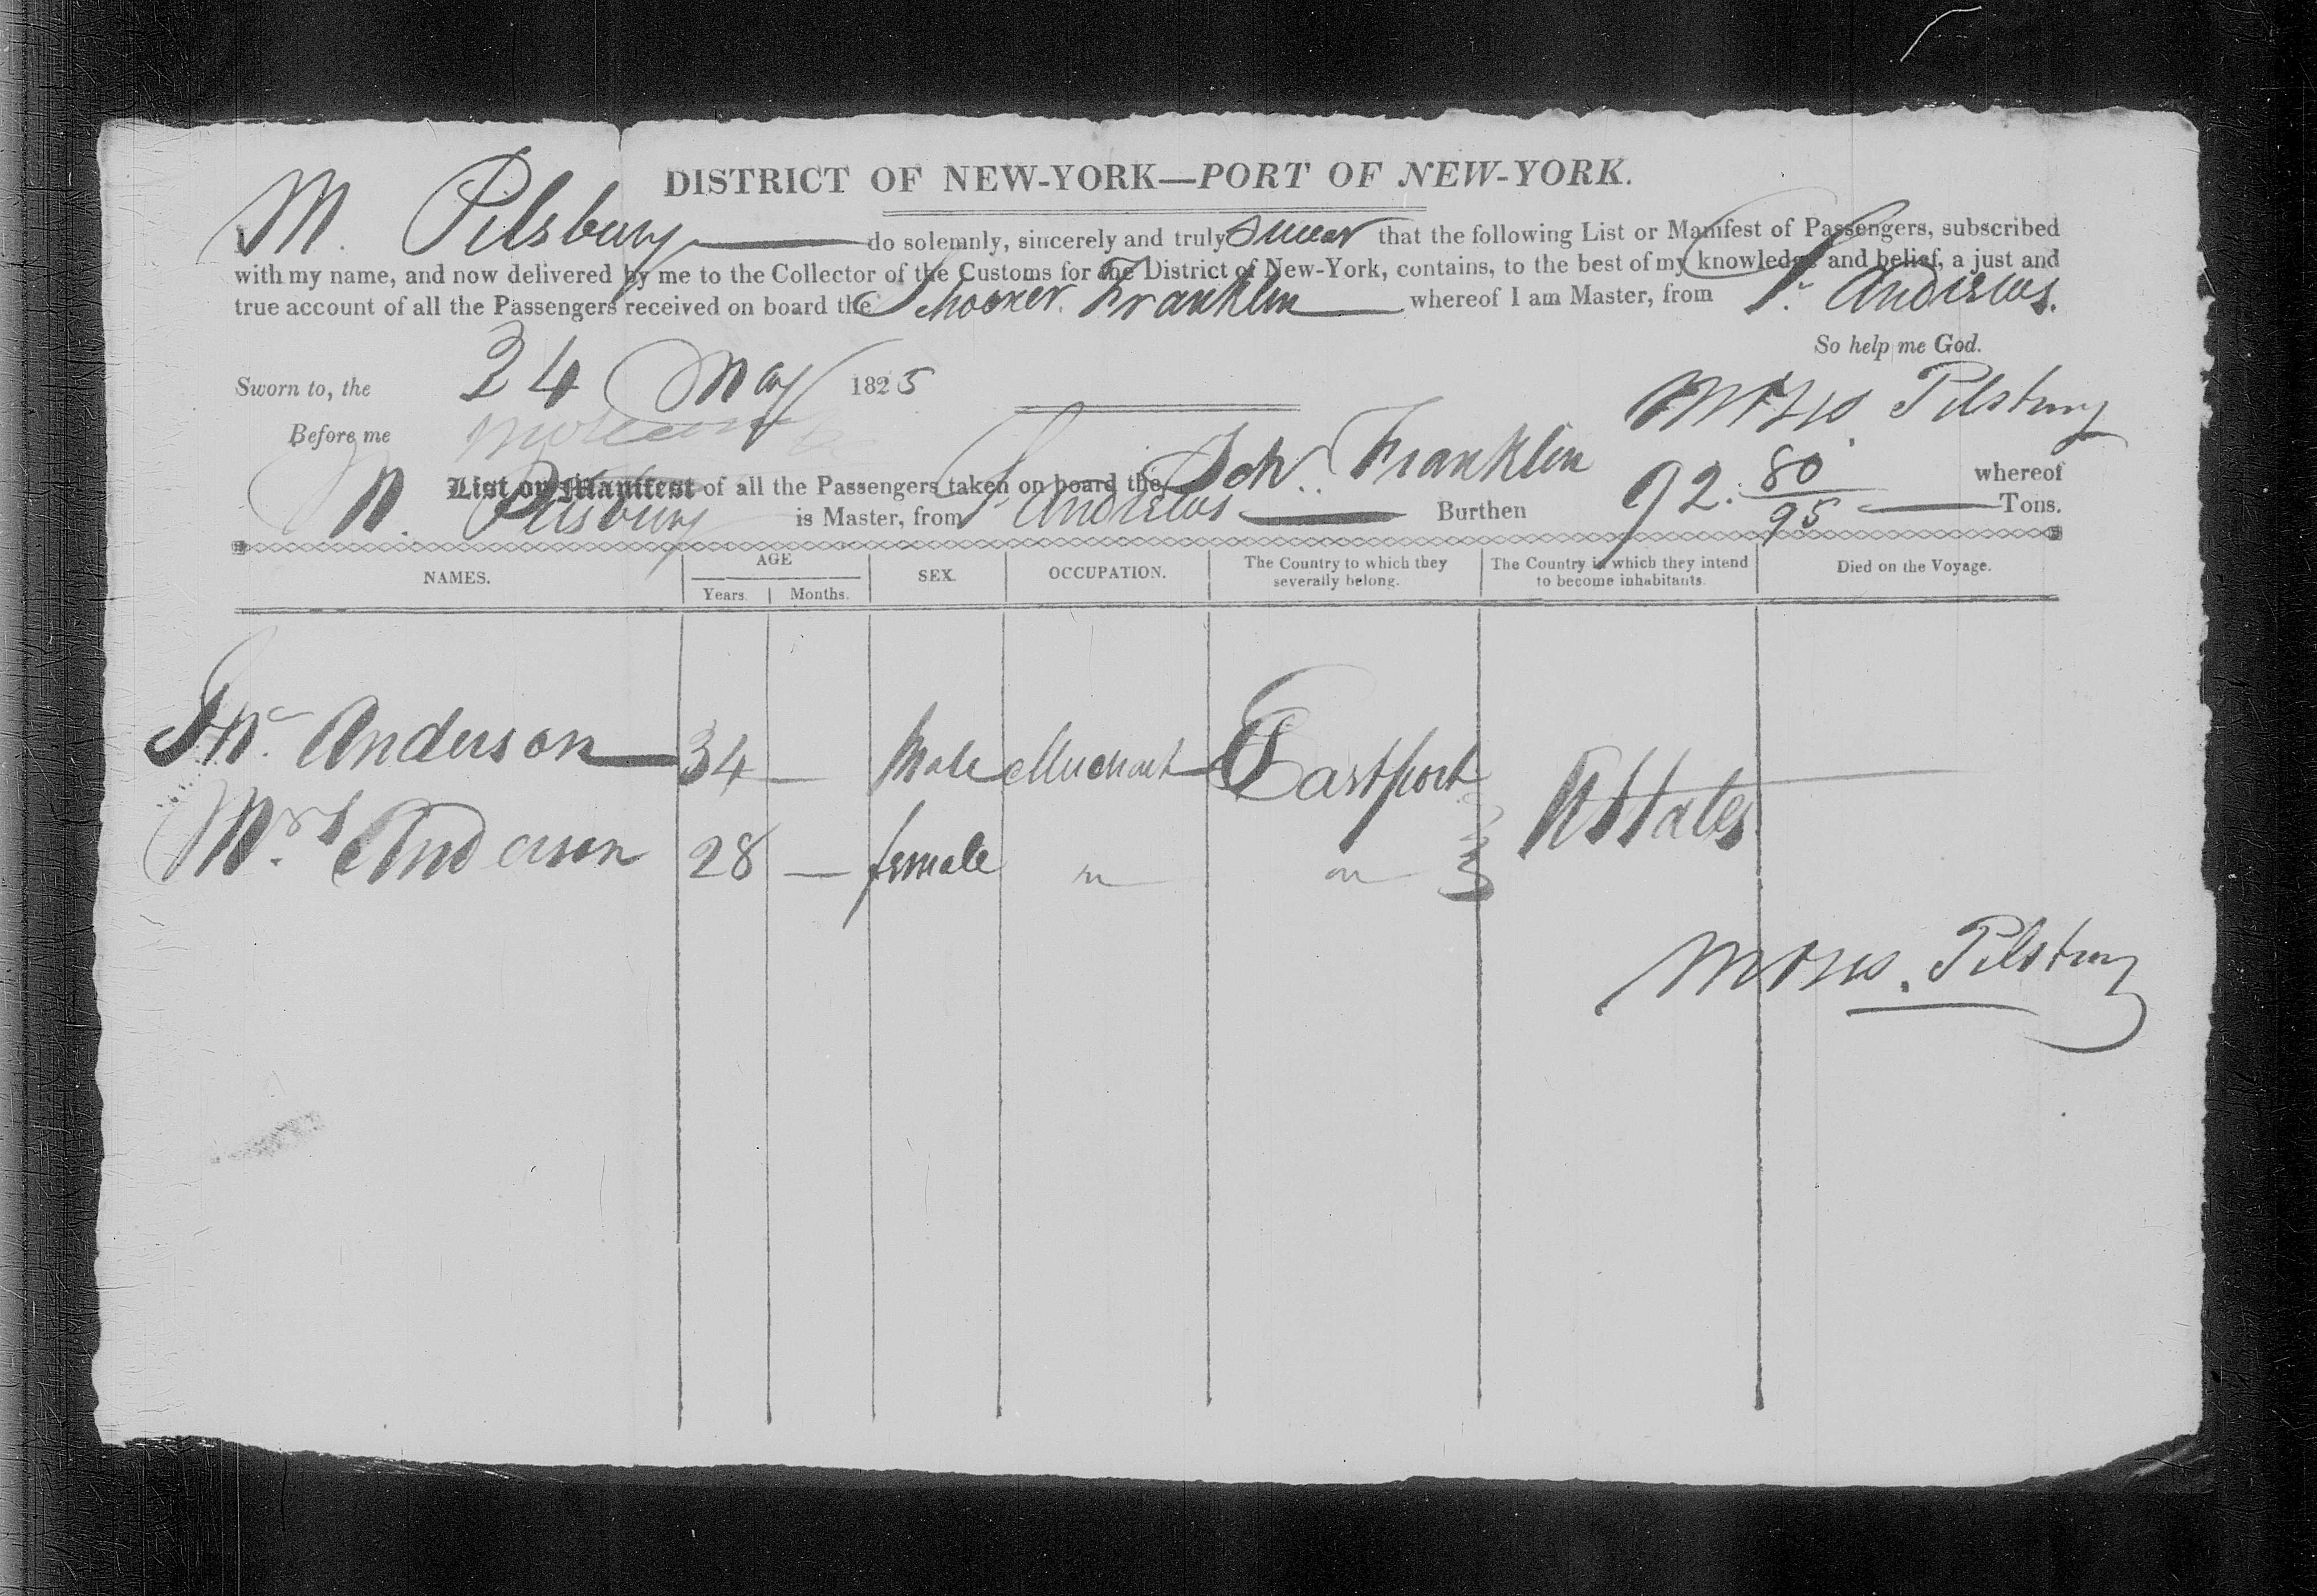 DISTRICT OF NEW-YORK—PORT OF NEW-YORK.
I, M. Pilsbury do solemnly, sincerely and truly swear that the following List or Manifest of Passengers, subscribed
with my name, and now delivered by me to the Collector of the Customs for the District of New-York, contains, to the best of my knowledge and belief, a just and
true account of all the Passengers received on board the Schooner Franklin whereof I am Master, from St. Andrews.
So help me God.
Sworn to, the 24 May 1825
Moses Pilsbury
Before me
List or Manifest of all the Passengers taken on board the Schr. Franklin whereof
M. Pilsbury is Master, from St Andrews Burthen 92. 80/95 Tons.
NAMES. AGE SEX. OCCUPATION. The Country to which they severally belong. The Country in which they intend to become inhabitants. Died on the Voyage.
Years. Months.
Jno Anderson 34 — Male Merchant Eastport
UStates
Mrs Anderson 28 — female
Moses. Pilsbury